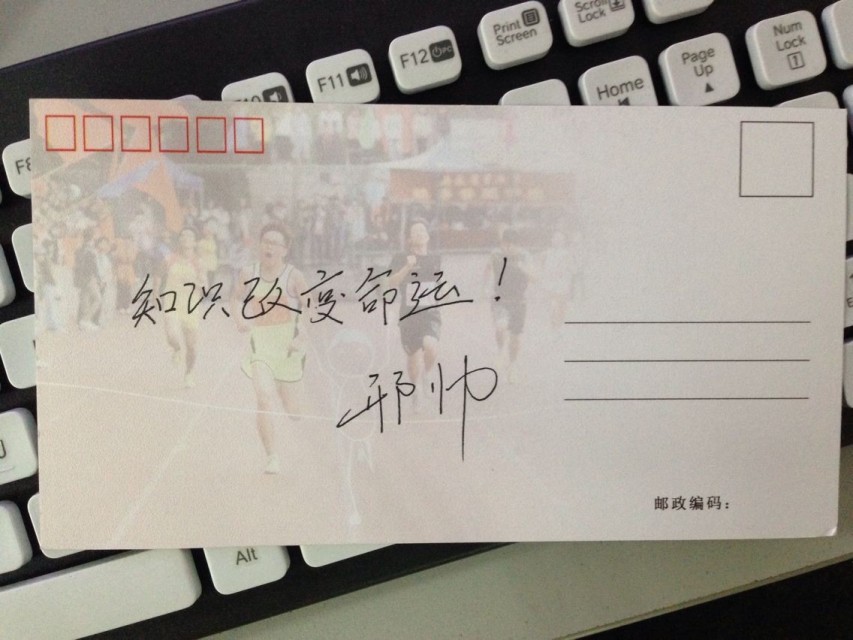 Print Screen
Scroll Lock
F12
F11
Num Lock
1
Page Up
Home
知识改变命运!
邢帅
邮政编码:
Alt